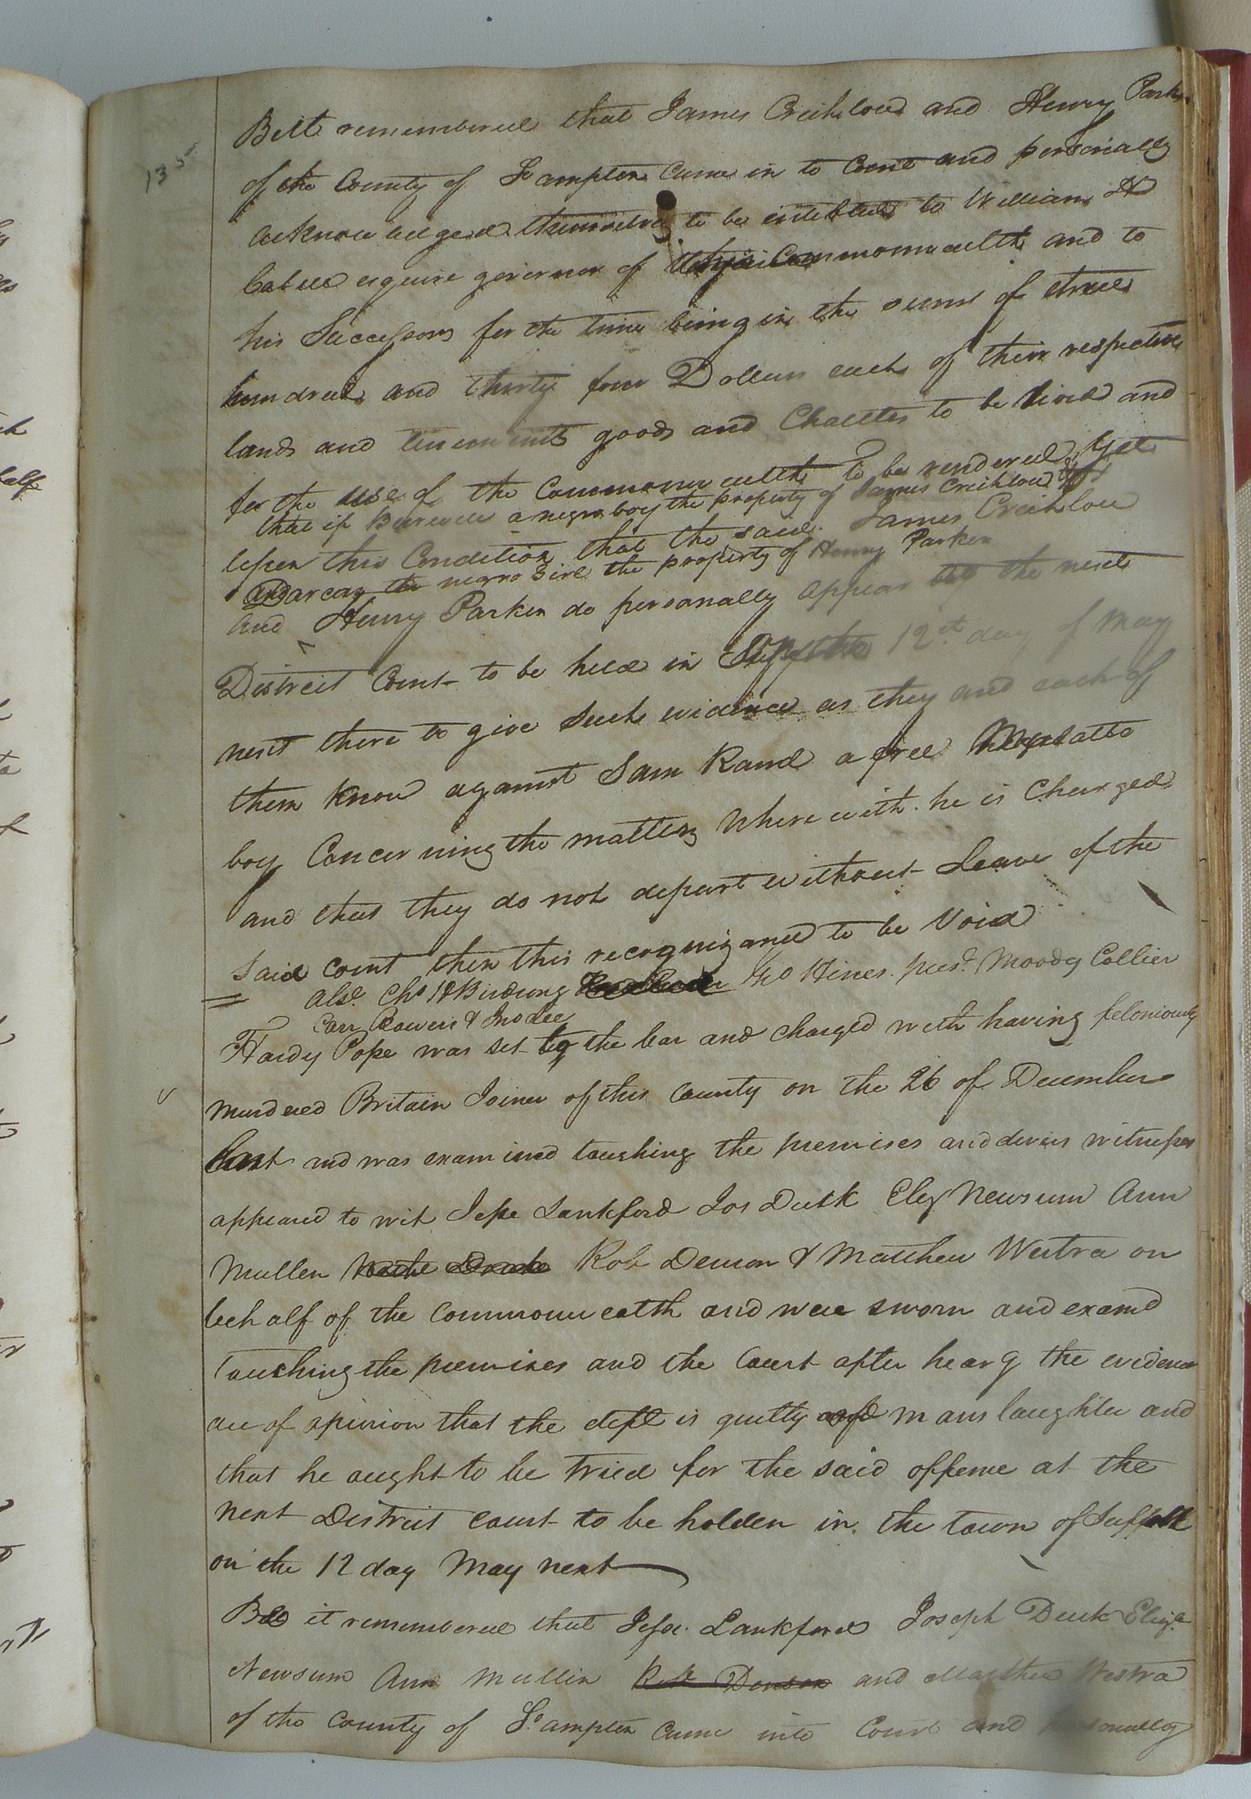 135
Be it remembered that James Crichlow and Henry Parker
of the County of S:ampton Came in to Court and personally
acknowledged themselves to be indebted to William H
Cabell esquire governor of Commonwealth and to
his Successors for the time being in the sum of three
hundred and thirty four Dollars each of their respective
lands and tenements goods and Chattles to be levied and
for the use of the Commonwealth to be rendered Yet
that if a negro boy the property of James Crichlow
upon this Condition that the said James Crichlow
and Darcas the negro Girl the property of Henry Parker
and Henry Parker do personally appear the next
District Court to be held in the 12th day of May
next there to give such evidence as they and each of
them know against Sam Rand a free Mulatto
boy Concerning the matters Where with he is Charged
and that they do not depart without Leave of the
said Court then this recognizance to be Void
Geo Hines prest. Moody Collier
Carr Bowers & Jno Lee
Hardy Pope was set to the bar and charged with having feloniously
murdered Britain Joiner of this County on the 26 of December
last and was examined touching the premises and divers witnesses
appeared to wit Jesse Lankford Jos Duck Ely Newsum Ann
Mullen Rob Denson & Matthew Westra on
behalf of the Commonwealth and were sworn and examd
Touching the premises and the Court after hearg the evidence
are of opinion that the deft is guilty of manslaughter and
that he ought to be tried for the said offence at the
next District Court to be holden in the town of Suffolk
on the 12 day May next
Be it remembered that Jesse Lankford Joseph Duck Eliza
Newsum Ann Mullin Rob Denson and Matthew Westra
of the County of S:ampton Came into Court and personally